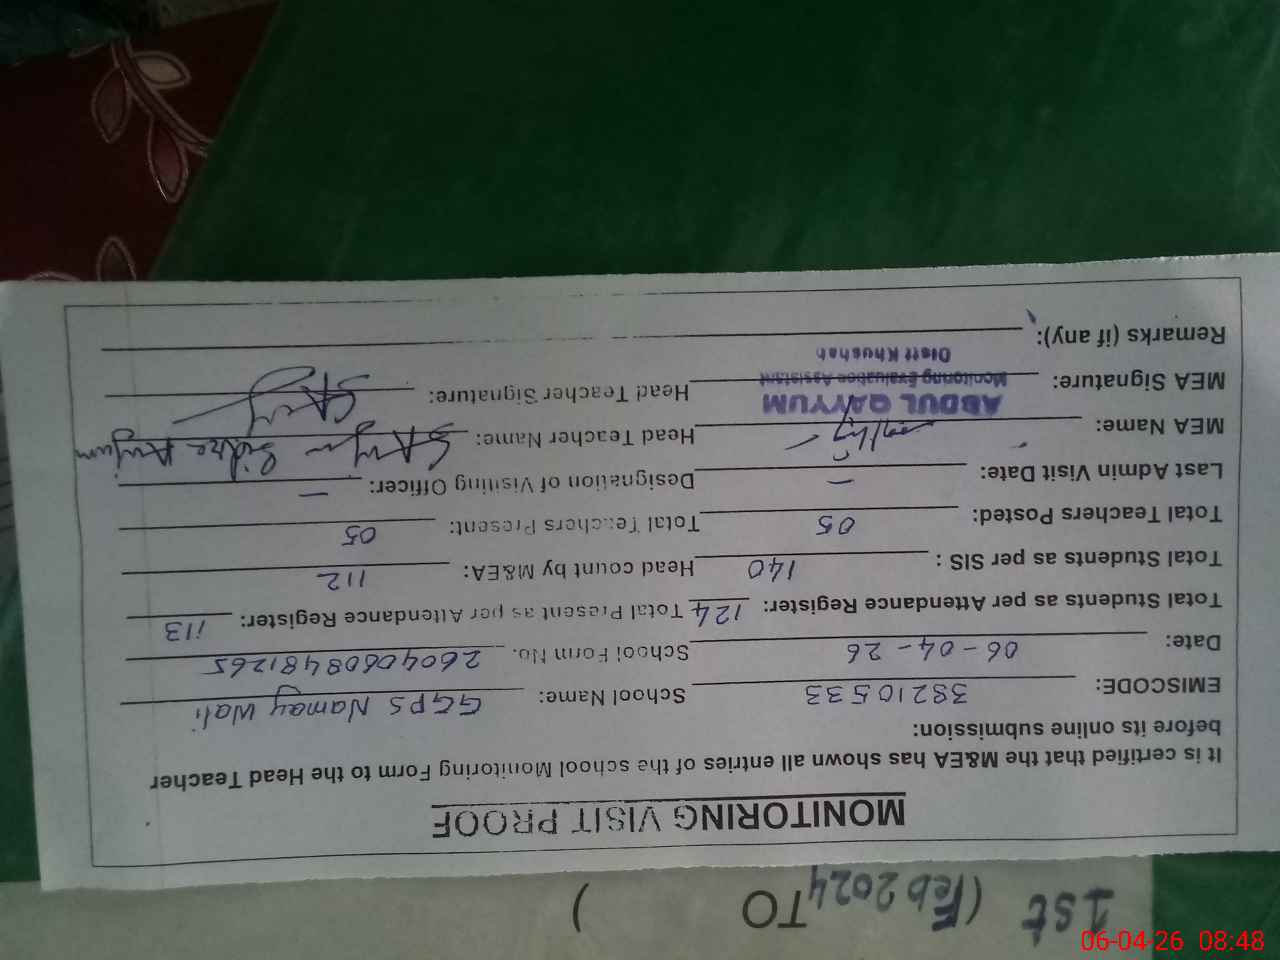 1st (Feb 2024 TO )
MONITORING VISIT PROOF
It is certified that the M&EA has shown all entries of the school Monitoring Form to the Head Teacher
before its online submission:
EMISCODE: 38210533 School Name: GGPS Namay Wali
Date: 06-04-26 School Form No. 26040608481265
Total Students as per Attendance Register: 124 Total Present as per Attendance Register: 113
Total Students as per SIS : 140 Head count by M&EA: 112
Total Teachers Posted: 05 Total Teachers Present: 05
Last Admin Visit Date: – Designation of Visiting Officer: –
MEA Name: Head Teacher Name: Sidra Anjum
ABDUL QAYYUM
MEA Signature: Monitoring Evaluation Assistant Head Teacher Signature:
Distt Khushab
Remarks (if any):
06-04-26 08:48